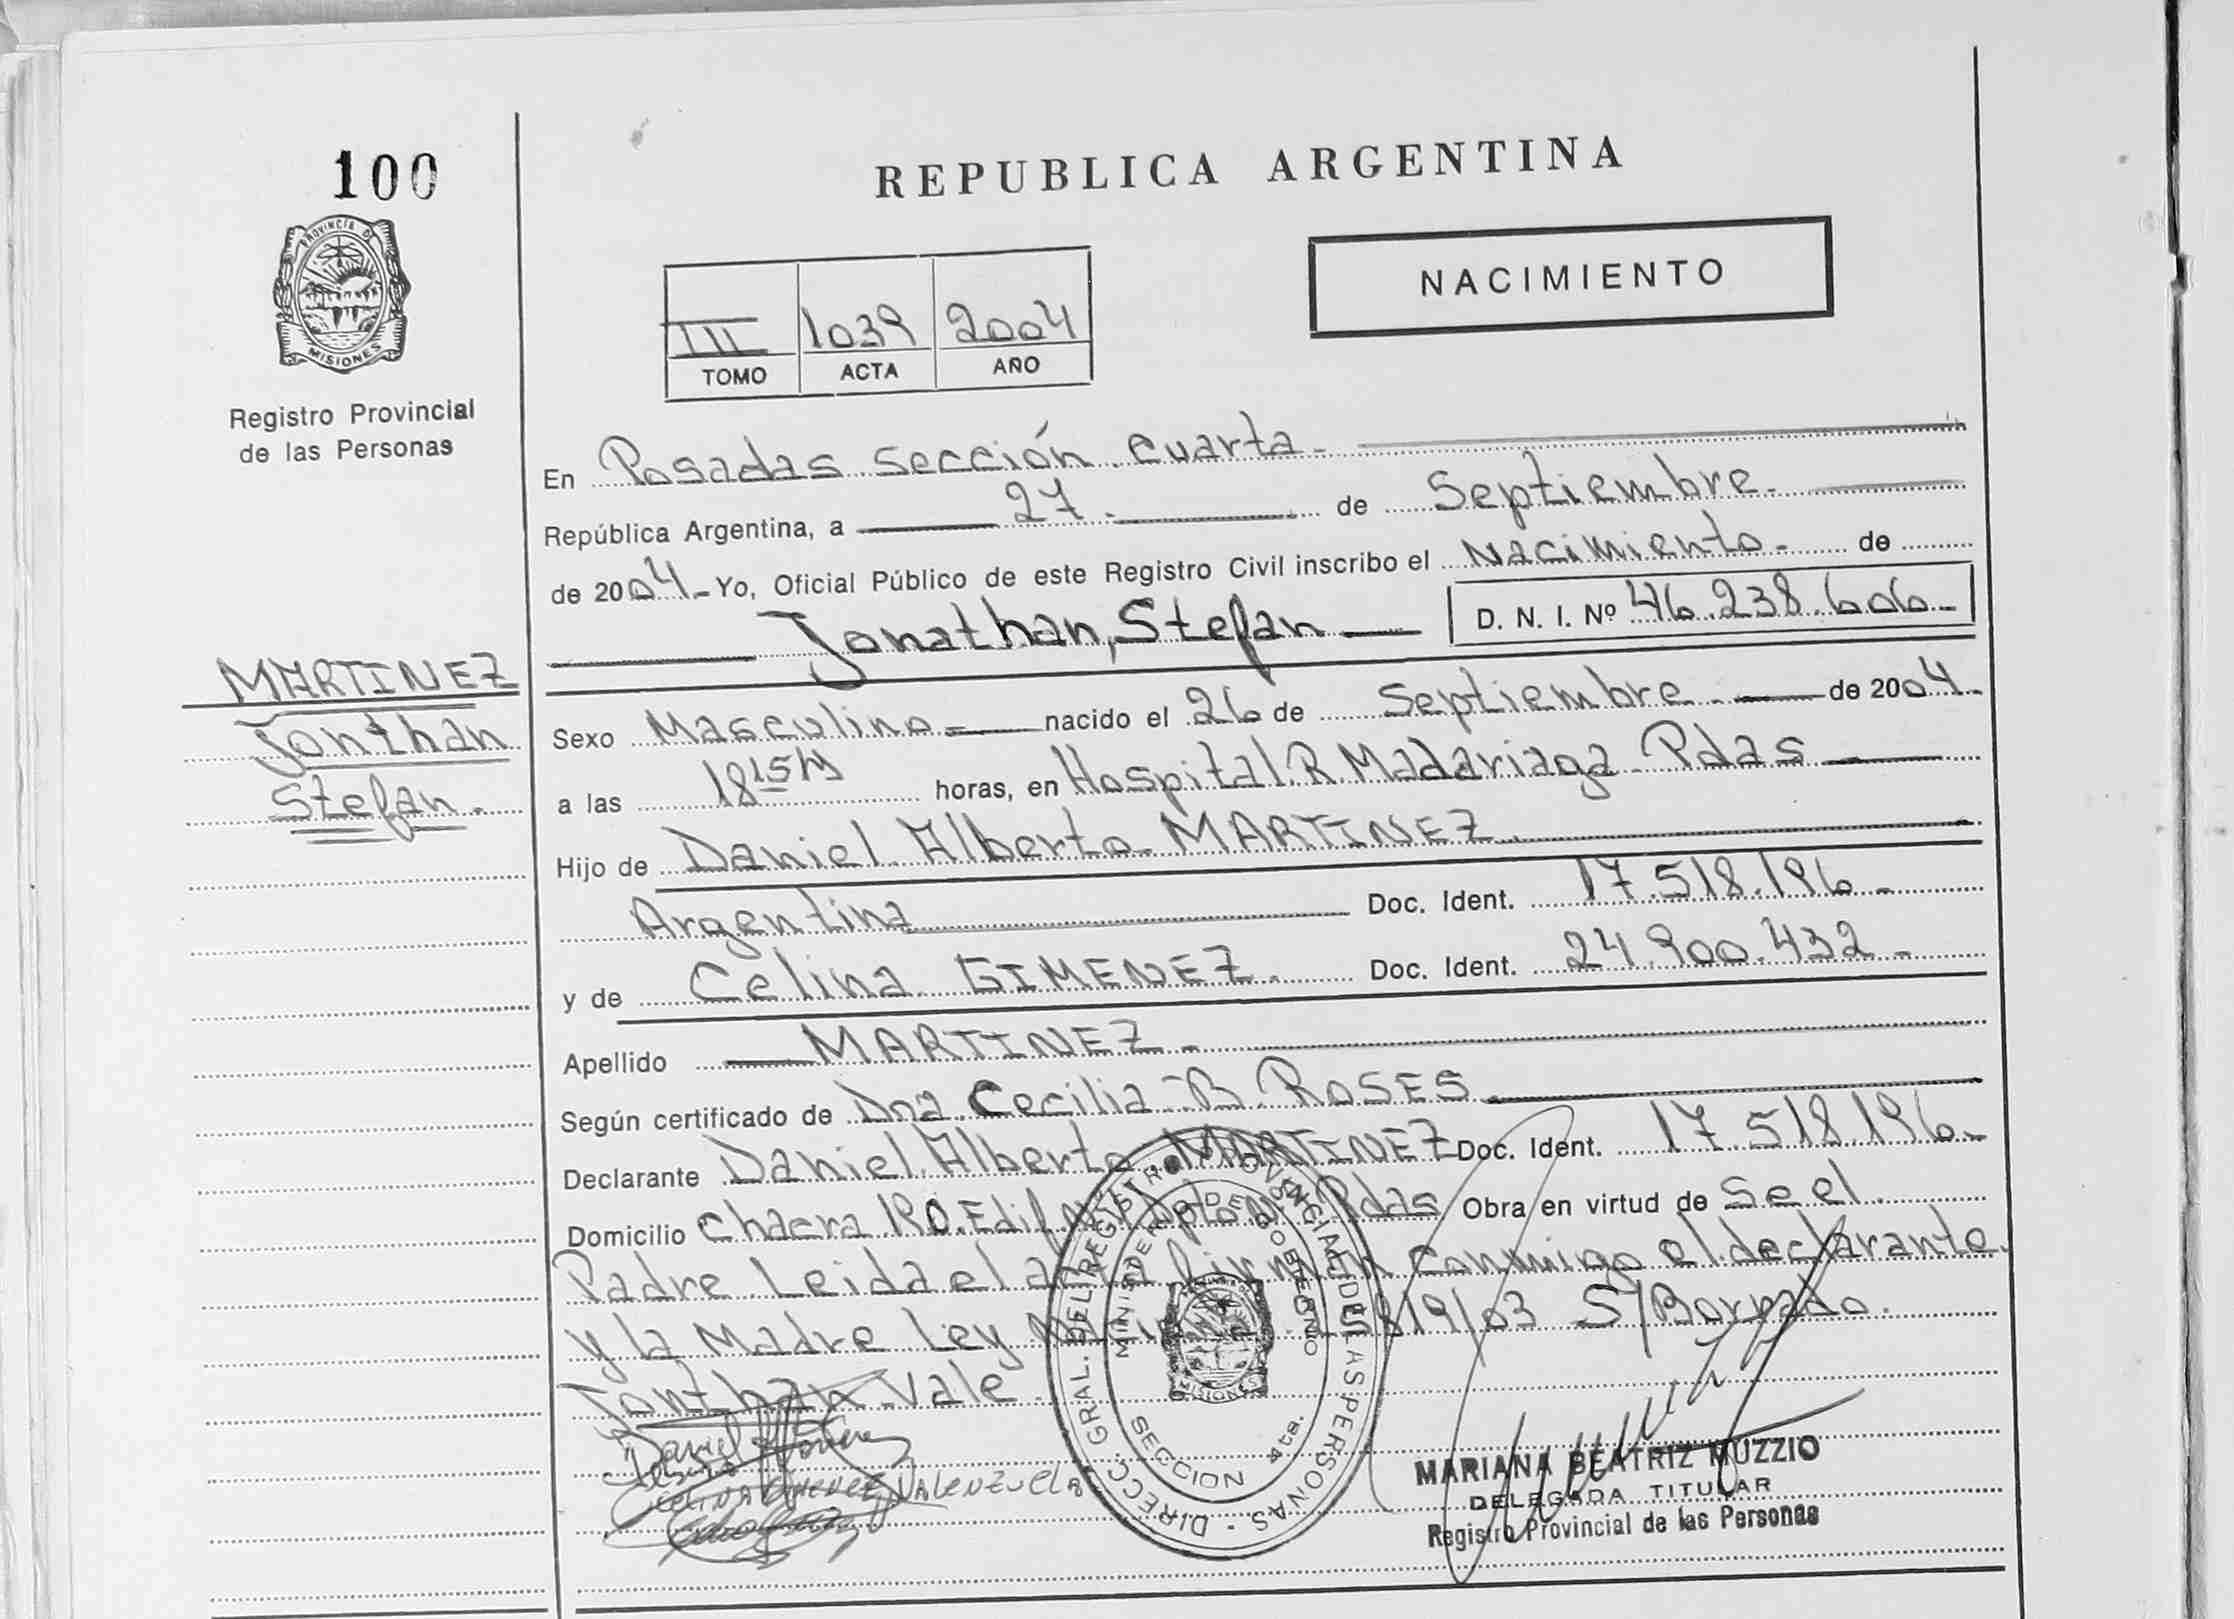 100
PROVINCIA D
MISIONES
Registro Provincial
de las Personas
MARTINEZ
Jonthan
Stefan.
REPUBLICA ARGENTINA
NACIMIENTO
III 1039 2004
TOMO ACTA AÑO
En Posadas sección cuarta-
República Argentina, a 27. de Septiembre.
de 2004.- Yo, Oficial Público de este Registro Civil inscribo el Nacimiento. de
Jonathan, Stefan D. N. I. Nº 46.238.606-
Sexo Masculino- nacido el 26 de Septiembre. de 2004.-
a las 18 15 hs horas, en Hospital R Madariaga Pdas
Hijo de Daniel Alberto MARTINEZ.
Argentina Doc. Ident. 17.518.196.-
y de Celina GIMENEZ. Doc. Ident. 24.900.432-
Apellido MARTINEZ-
Según certificado de Dna Cecilia B. ROSES
Declarante Daniel Alberto MARTINEZ Doc. Ident. 17.518.196.-
Domicilio Chacra Edif Pdas Obra en virtud de Se el
Padre Leida el acta firman conmigo el declarante
y la Madre Ley 819/03 S/Borrado.
Jonthan Vale
CELINA GIMENEZ VALENZUELA
DIRECC. GRAL. DEL REGISTRO PROVINCIAL DE LAS PERSONAS
MINISTERIO DE GOBIERNO
MISIONES
SECCION 4ta.
MARIANA BEATRIZ MUZZIO
DELEGADA TITULAR
Registro Provincial de las Personas